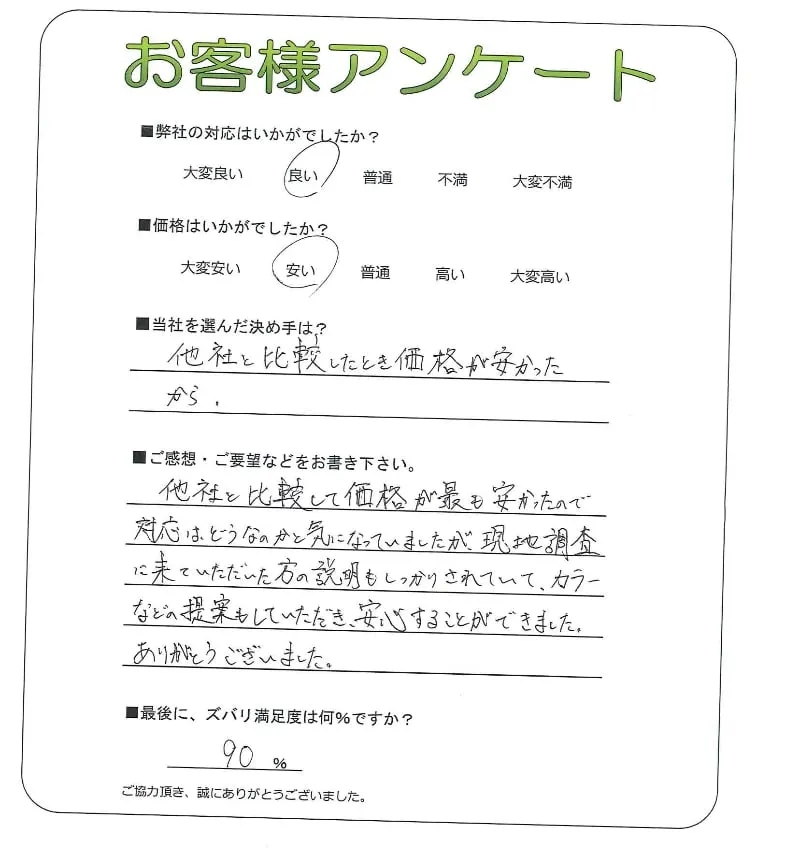 お客様アンケート
■弊社の対応はいかがでしたか？
大変良い 良い 普通 不満 大変不満
■価格はいかがでしたか？
大変安い 安い 普通 高い 大変高い
■当社を選んだ決め手は？
他社と比較したとき価格が安かった
から.
■ご感想・ご要望などをお書き下さい。
他社と比較して価格が最も安かったので
対応は、どうなのかと気になっていましたが、現地調査
に来ていただいた方の説明もしっかりされていて、カラー
などの提案もしていただき、安心することができました。
ありがとうございました。
■最後に、ズバリ満足度は何％ですか？
90 ％
ご協力頂き、誠にありがとうございました。